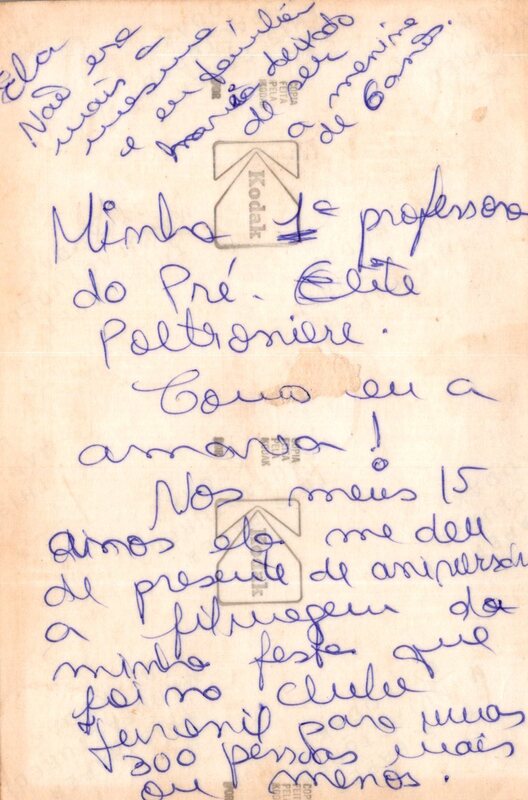 Ela
Não era
mais a
mesma
e eu também
havia deixado
de ser
a menina
de 6 anos.
Minha 1ª professora
do Pré. Elite
Poltroniere.
Como eu a
amava!
Nos meus 15
anos ela me deu
de presente de aniversár
a filmagem da
minha festa que
foi no clube
Juvenil para umas
300 pessoas mais
ou menos.
Kodak
COPIA
FEITA
PELA
KODAK
Kodak